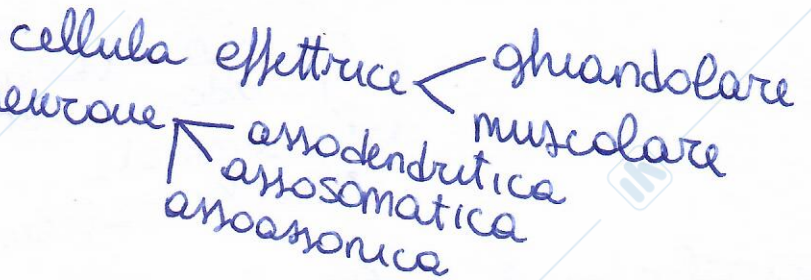 cellula effettrice < ghiandolare
muscolare
eurone assodendritica
assosomatica
assoassonica